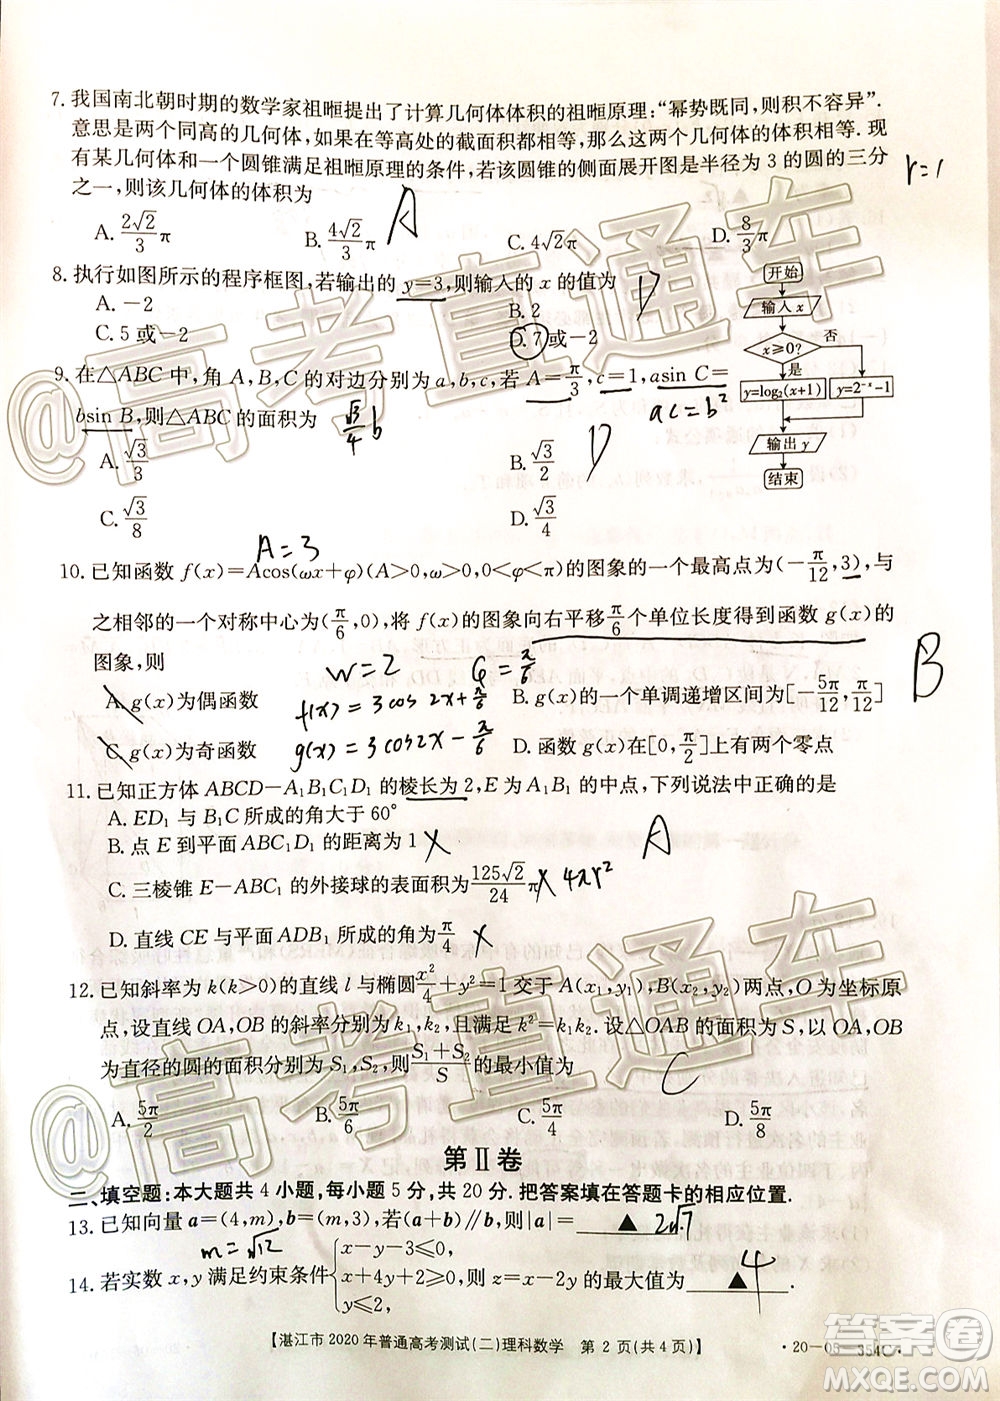 7. 我国南北朝时期的数学家祖暅提出了计算几何体体积的祖暅原理:“幂势既同,则积不容异”.
意思是两个同高的几何体,如果在等高处的截面积都相等,那么这两个几何体的体积相等.现
有某几何体和一个圆锥满足祖暅原理的条件,若该圆锥的侧面展开图是半径为 3 的圆的三分
之一,则该几何体的体积为
r=1
A
A. 2√2/3 π
B. 4√2/3 π
C. 4√2π
D. 8/3 π
8. 执行如图所示的程序框图,若输出的 y=3,则输入的 x 的值为
D
A. -2
B. 2
C. 5 或-2
D. 7 或-2
开始
输入 x
x≥0?
否
是
y=log₂(x+1)
y=2⁻ˣ-1
输出 y
结束
9. 在△ABC 中,角 A,B,C 的对边分别为 a,b,c,若 A=π/3,c=1,asin C=
bsin B,则△ABC 的面积为
√3/4 b
ac=b²
D
A. √3/3
B. √3/2
C. √3/8
D. √3/4
A=3
10. 已知函数 f(x)=Acos(ωx+φ)(A>0,ω>0,0<φ<π)的图象的一个最高点为(-π/12,3),与
之相邻的一个对称中心为(π/6,0),将 f(x)的图象向右平移π/6个单位长度得到函数 g(x)的
图象,则
w=2
φ=π/6
B
A. g(x)为偶函数
f(x)=3cos2x+π/6
B. g(x)的一个单调递增区间为[-5π/12,π/12]
C. g(x)为奇函数
g(x)=3cos2x-π/6
D. g(x)在[0,π/2]上有两个零点
11. 已知正方体 ABCD-A₁B₁C₁D₁ 的棱长为 2,E 为 A₁B₁ 的中点,下列说法中正确的是
A. ED₁ 与 B₁C 所成的角大于 60°
B. 点 E 到平面 ABC₁D₁ 的距离为 1
A
C. 三棱锥 E-ABC₁ 的外接球的表面积为125√2/24 π
4πr²
D. 直线 CE 与平面 ADB₁ 所成的角为π/4
12. 已知斜率为 k(k>0)的直线 l 与椭圆x²/4+y²=1 交于 A(x₁,y₁),B(x₂,y₂)两点,O 为坐标原
点,设直线 OA,OB 的斜率分别为 k₁,k₂,且满足 k²=k₁k₂. 设△OAB 的面积为 S,以 OA,OB
为直径的圆的面积分别为 S₁,S₂,则(S₁+S₂)/S的最小值为
C
A. 5π/2
B. 5π/6
C. 5π/4
D. 5π/8
第Ⅱ卷
二、填空题:本大题共 4 小题,每小题 5 分,共 20 分. 把答案填在答题卡的相应位置.
13. 已知向量 a=(4,m),b=(m,3),若(a+b)∥b,则|a|= ▲
2√7
m=√12
14. 若实数 x,y 满足约束条件{x-y-3≤0, x+2y-6≥0, y≤2, 则 z=x-2y 的最大值为 ▲
4
【湛江市 2020 年普通高考测试(二)理科数学 第 2 页(共 4 页)】
·20-05 354C·
@高考直通车
@高考直通车
答案圈
MXQE.COM